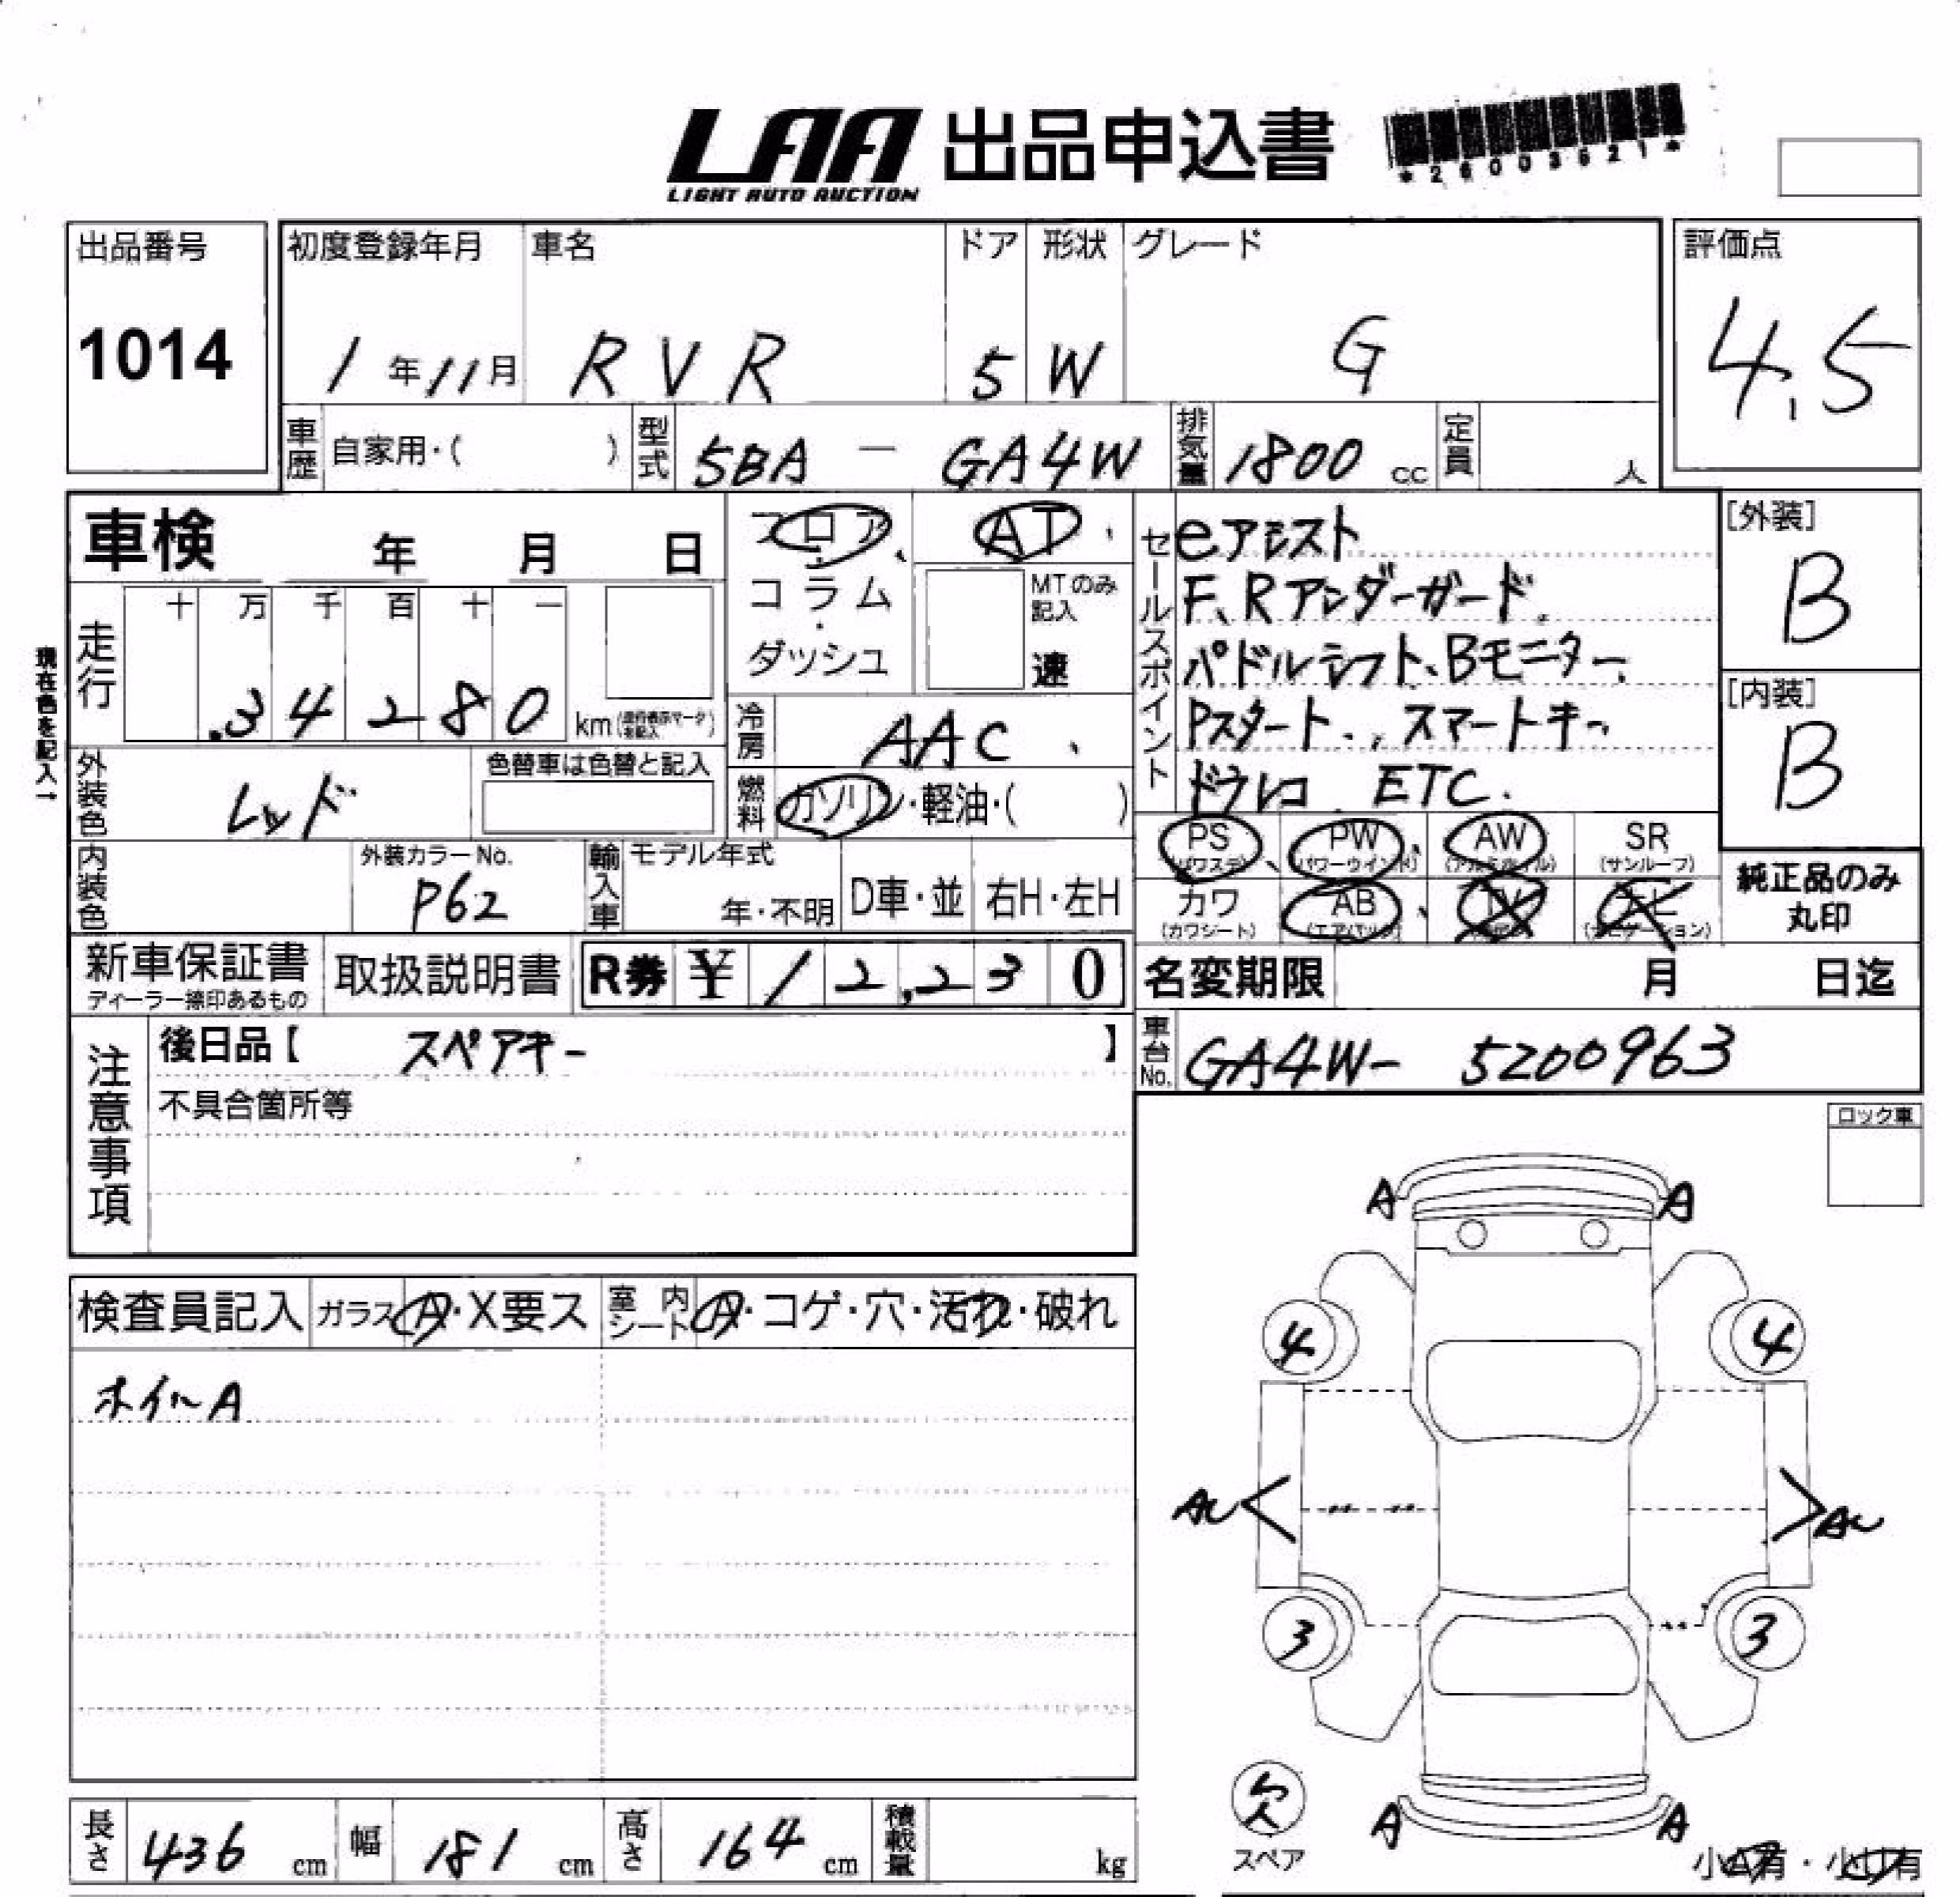 LAA 出品申込書
LIGHT AUTO AUCTION
*26003521*
出品番号 初度登録年月 車名 ドア 形状 グレード 評価点
1014 1年11月 RVR 5 W G 4.5
車歴 自家用・( ) 型式 5BA - GA4W 排気量 1800cc 定員 人
車検 年 月 日
フロア・コラム・ダッシュ
AT
MTのみ記入 速
走行 十 万 千 百 十 一
34280 km
現在色を記入→
冷房 AAC
燃料 ガソリン・軽油・( )
外装色 レッド 色替車は色替と記入
内装色 外装カラーNo. P62 輸入車 モデル年式 年・不明 D車・並 右H・左H
セールスポイント
eアシスト
F、Rアンダーガード
パドルシフト、Bモニター
Pスタート、スマートキー
ドラレコ ETC.
[外装] B
[内装] B
PS (パワステ) PW (パワーウインド) AW (アルミホイル) SR (サンルーフ)
カワ (カワシート) AB (エアバック) TV ナビ (ナビゲーション)
純正品のみ丸印
新車保証書 ディーラー捺印あるもの 取扱説明書 R券 ¥12,230
名変期限 月 日迄
車台No. GA4W- 5200963
注意事項
後日品【 スペアキー 】
不具合箇所等
ロック車
検査員記入 ガラス A・X要ス 室内シート A・コゲ・穴・汚れ・破れ
ホイールA
A A
4 4
3 3
A A
欠
スペア
小A有・小U有
長さ 436cm 幅 181cm 高さ 164cm 積載量 kg